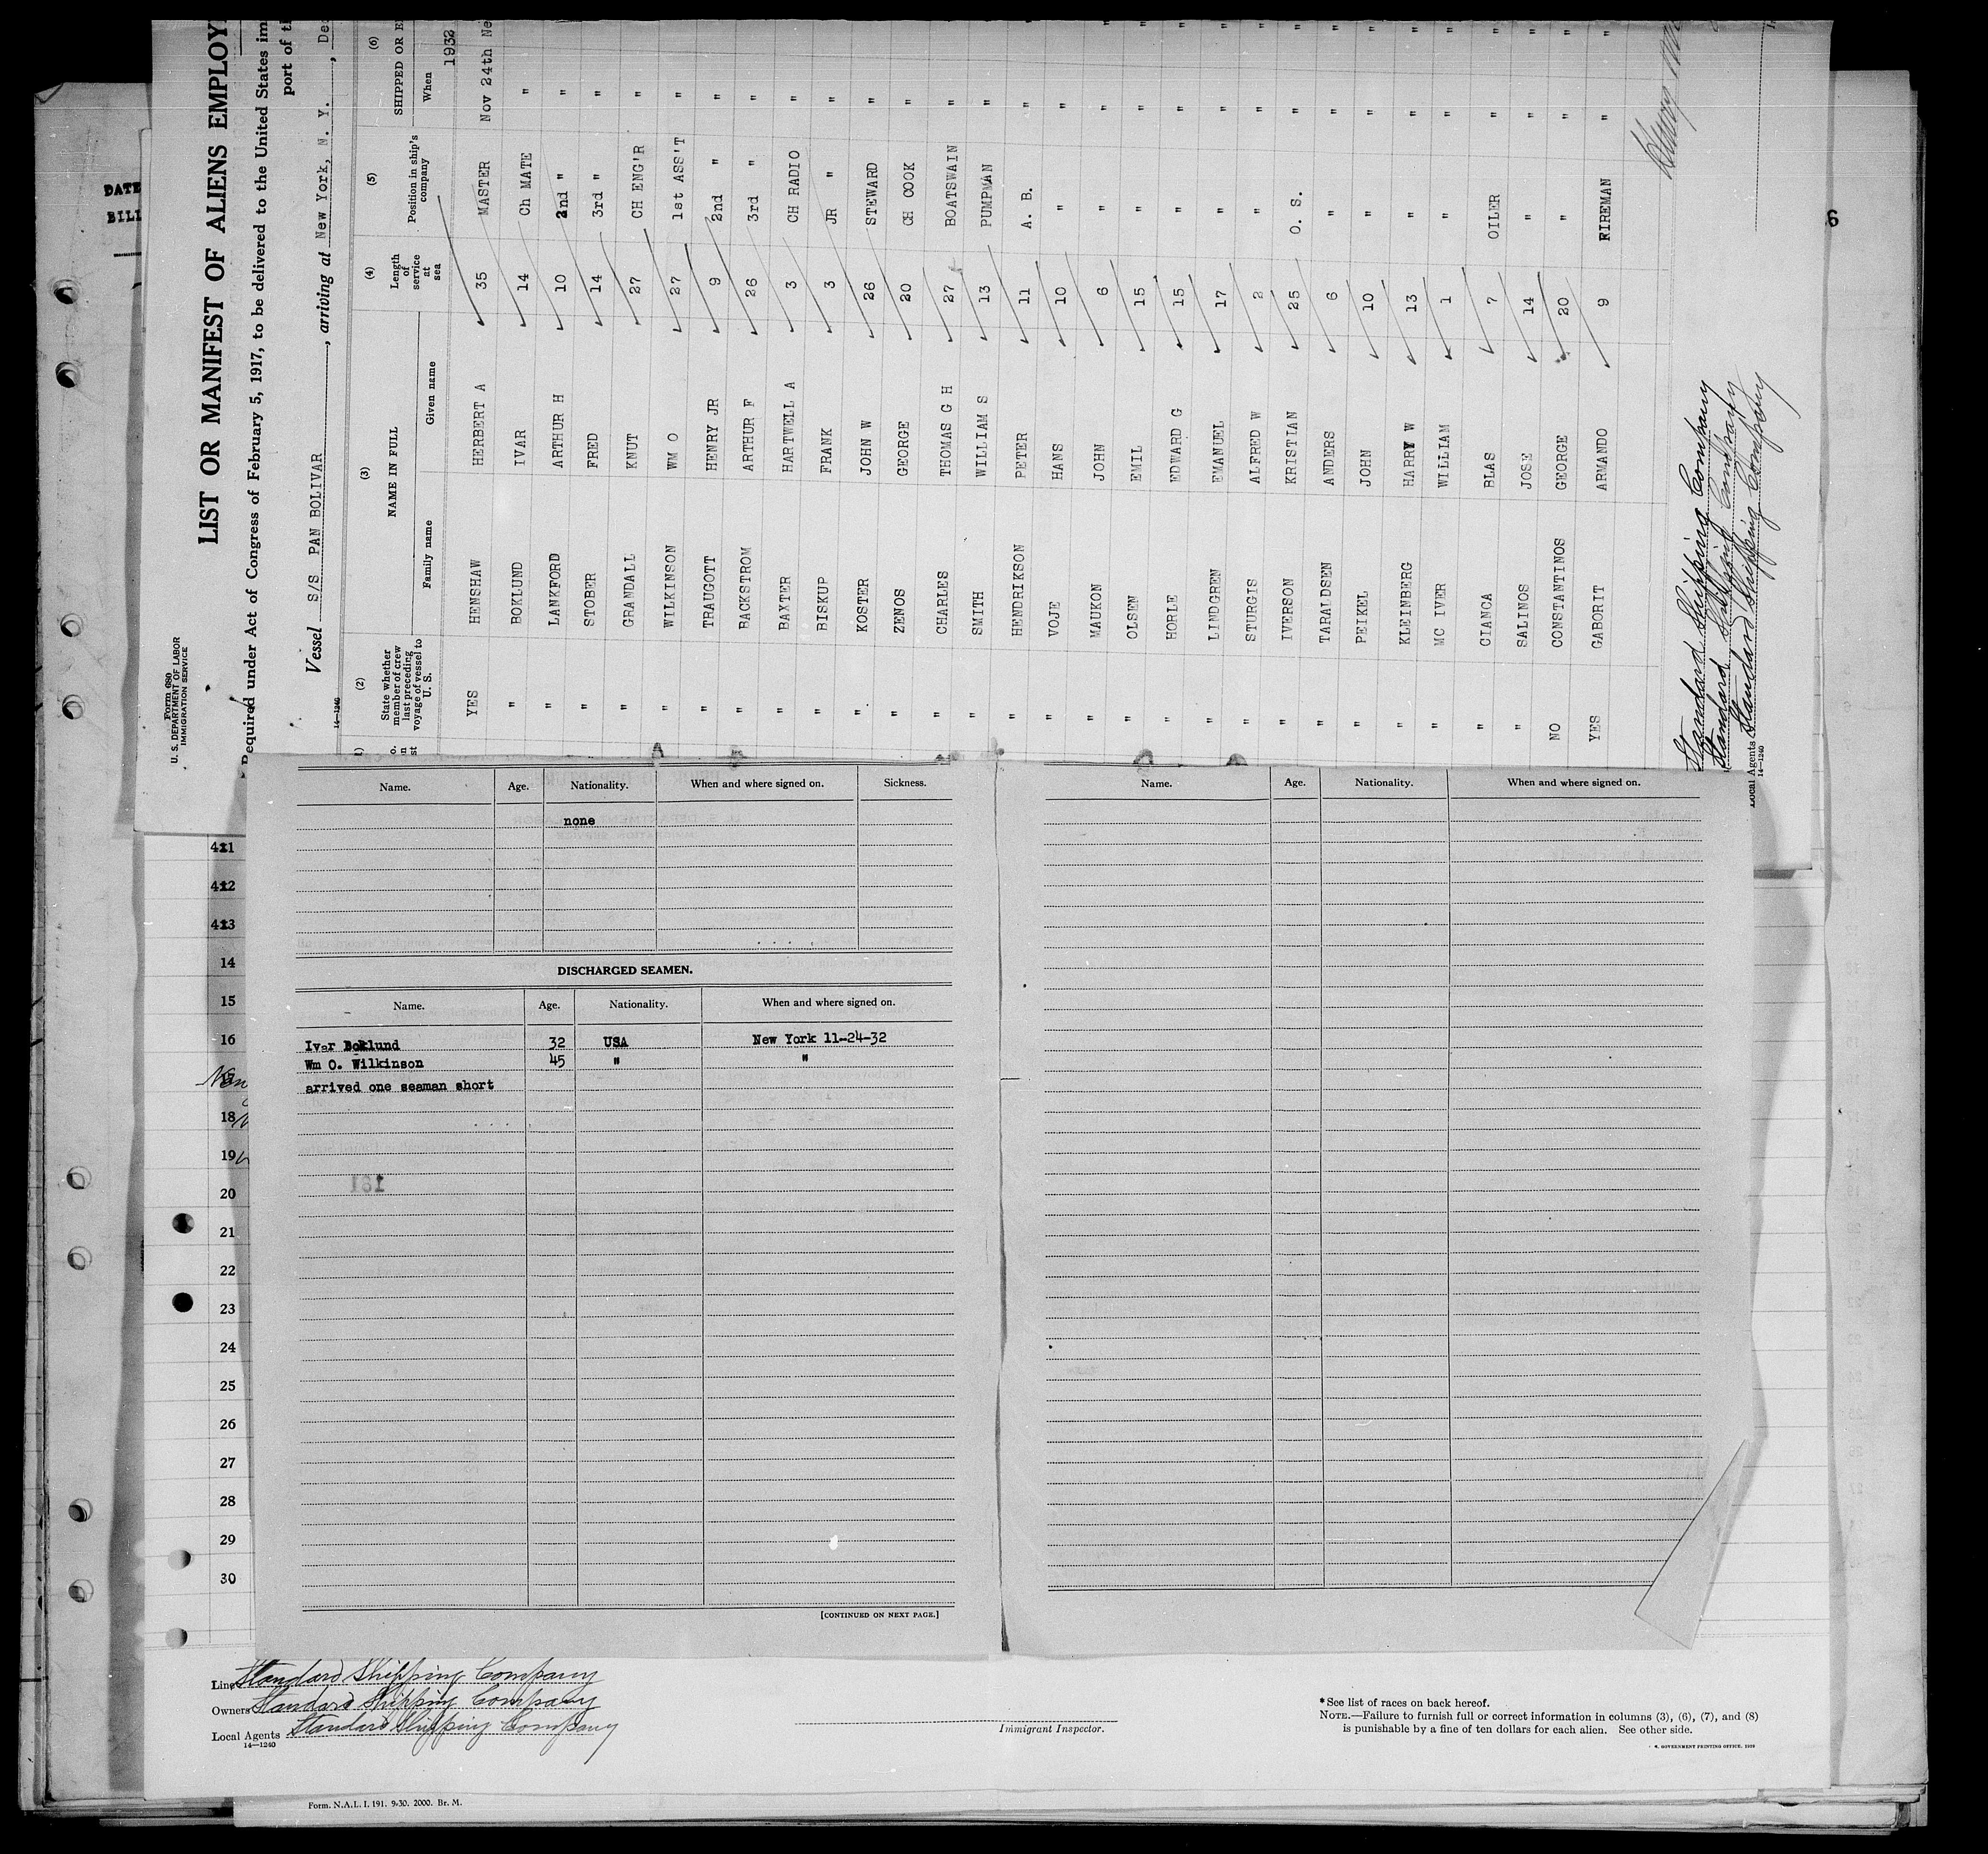 Form 680
U. S. DEPARTMENT OF LABOR
IMMIGRATION SERVICE
LIST OR MANIFEST OF ALIENS EMPLOY
Required under Act of Congress of February 5, 1917, to be delivered to the United States im
port of th
Vessel S/S PAN BOLIVAR, arriving at New York, N. Y., De
14—1240
(2) (3) (4) (5) (6)
State whether member of crew last preceding voyage of vessel to U. S.
NAME IN FULL
Family name Given name
Length of service at sea
Position in ship's company
SHIPPED OR E
When
1932
YES HENSHAW HERBERT A 35 MASTER Nov 24th Ne
" BOKLUND IVAR 14 Ch MATE "
" LANKFORD ARTHUR H 10 2nd " "
" STOBER FRED 14 3rd " "
" GRANDALL KNUT 27 CH ENG'R "
" WILKINSON WM O 27 1st ASS'T "
" TRAUGOTT HENRY JR 9 2nd " "
" BACKSTROM ARTHUR F 26 3rd " "
" BAXTER HARTWELL A 3 CH RADIO "
" BISKUP FRANK 3 JR " "
" KOSTER JOHN W 26 STEWARD "
" ZENOS GEORGE 20 CH COOK "
" CHARLES THOMAS G H 27 BOATSWAIN "
" SMITH WILLIAM S 13 PUMPMAN "
" HENDRIKSON PETER 11 A. B. "
" VOJE HANS 10 " "
" MAUKON JOHN 6 " "
" OLSEN EMIL 15 " "
" HORLE EDWARD G 15 " "
" LINDGREN EMANUEL 17 " "
" STURGIS ALFRED W 2 " "
" IVERSON KRISTIAN 25 O. S. "
" TARALDSEN ANDERS 6 " "
" PEIKEL JOHN 10 " "
" KLEINBERG HARRY W 13 " "
" MC IVER WILLIAM 1 " "
" CIANCA BLAS 7 OILER "
" SALINOS JOSE 14 " "
NO CONSTANTINOS GEORGE 20 " "
YES GABORIT ARMANDO 9 FIREMAN "
Standard Shipping Company
Standard Shipping Company
Local Agents Standard Shipping Company
14—1240
DATE
BILL
6
Name. Age. Nationality. When and where signed on. Sickness.
none
DISCHARGED SEAMEN.
Name. Age. Nationality. When and where signed on.
Ivar Boklund 32 USA New York 11-24-32
Wm O. Wilkinson 45 " "
arrived one seaman short
161
[CONTINUED ON NEXT PAGE.]
Name. Age. Nationality. When and where signed on.
411
412
413
14
15
16
18
19
20
21
22
23
24
25
26
27
28
29
30
Line Standard Shipping Company
Owners Standard Shipping Company
Local Agents Standard Shipping Company
14—1240
Immigrant Inspector.
*See list of races on back hereof.
NOTE.—Failure to furnish full or correct information in columns (3), (6), (7), and (8)
is punishable by a fine of ten dollars for each alien. See other side.
Form. N.A.L. I. 191. 9-30. 2000. Br. M.